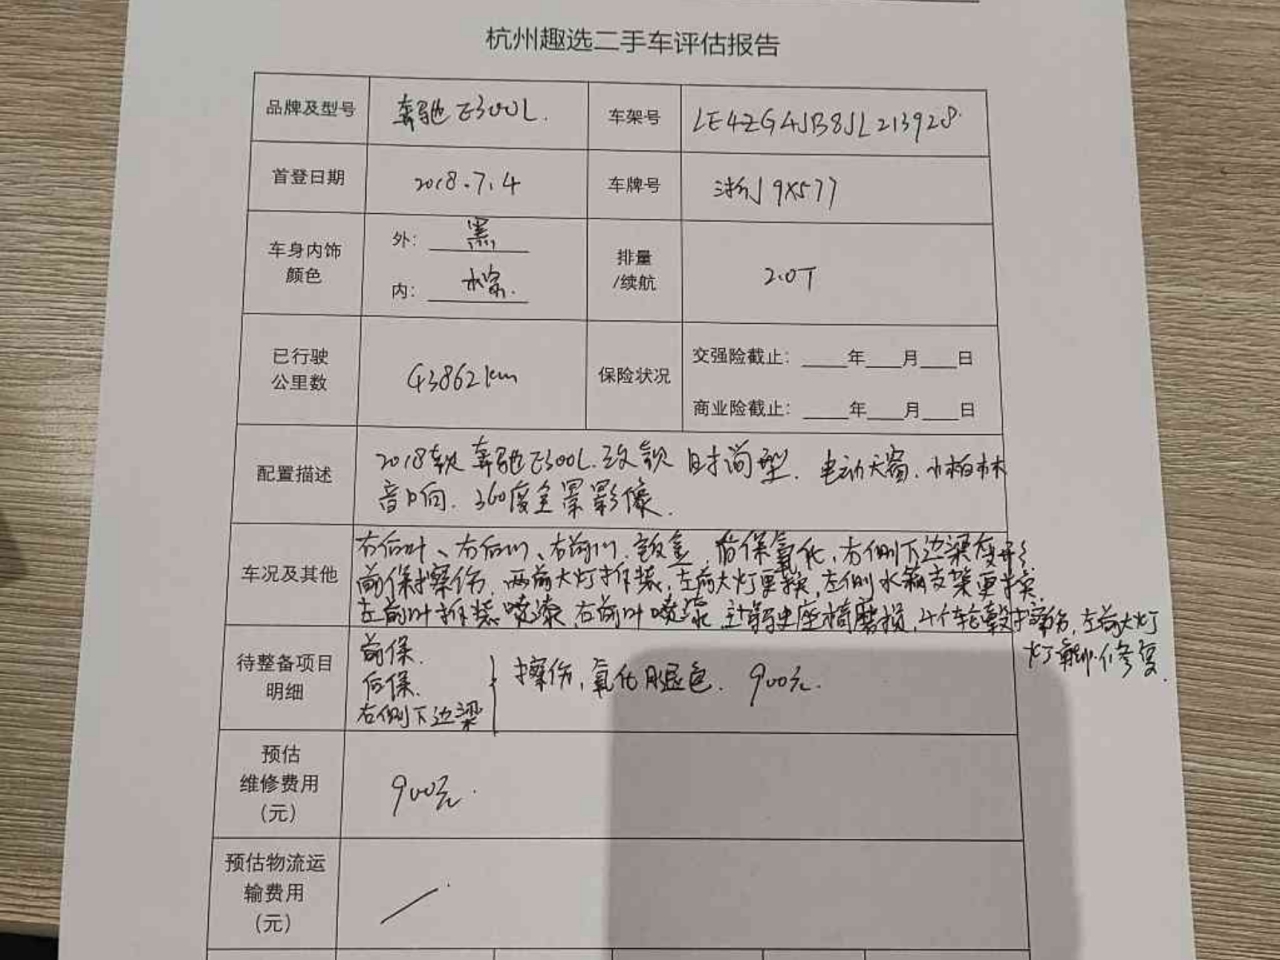 杭州趣选二手车评估报告
品牌及型号 奔驰E300L. 车架号 LE4ZG4JB8JL213928
首登日期 2018.7.4 车牌号 浙J9X577
车身内饰颜色 外: 黑 内: 水棕. 排量/续航 2.0T
已行驶公里数 43862km 保险状况 交强险截止: 年 月 日
商业险截止: 年 月 日
配置描述 2018款 奔驰E300L. 改款 时尚型. 电动天窗. 小柏林
音响. 360度全景影像.
车况及其他 右后叶、右后门、右前门. 钣金 后保氧化, 右侧下边梁变形
前保擦伤. 两前大灯拆装, 左前大灯更换, 左侧水箱支架更换
左前叶拆装喷漆 右前叶喷漆 主驾座椅磨损, 4个轮毂擦伤. 左前大灯
灯脚修复.
待整备项目明细 前保.
后保. 擦伤, 氧化脱色. 900元.
右侧下边梁
预估维修费用(元) 900元.
预估物流运输费用(元)